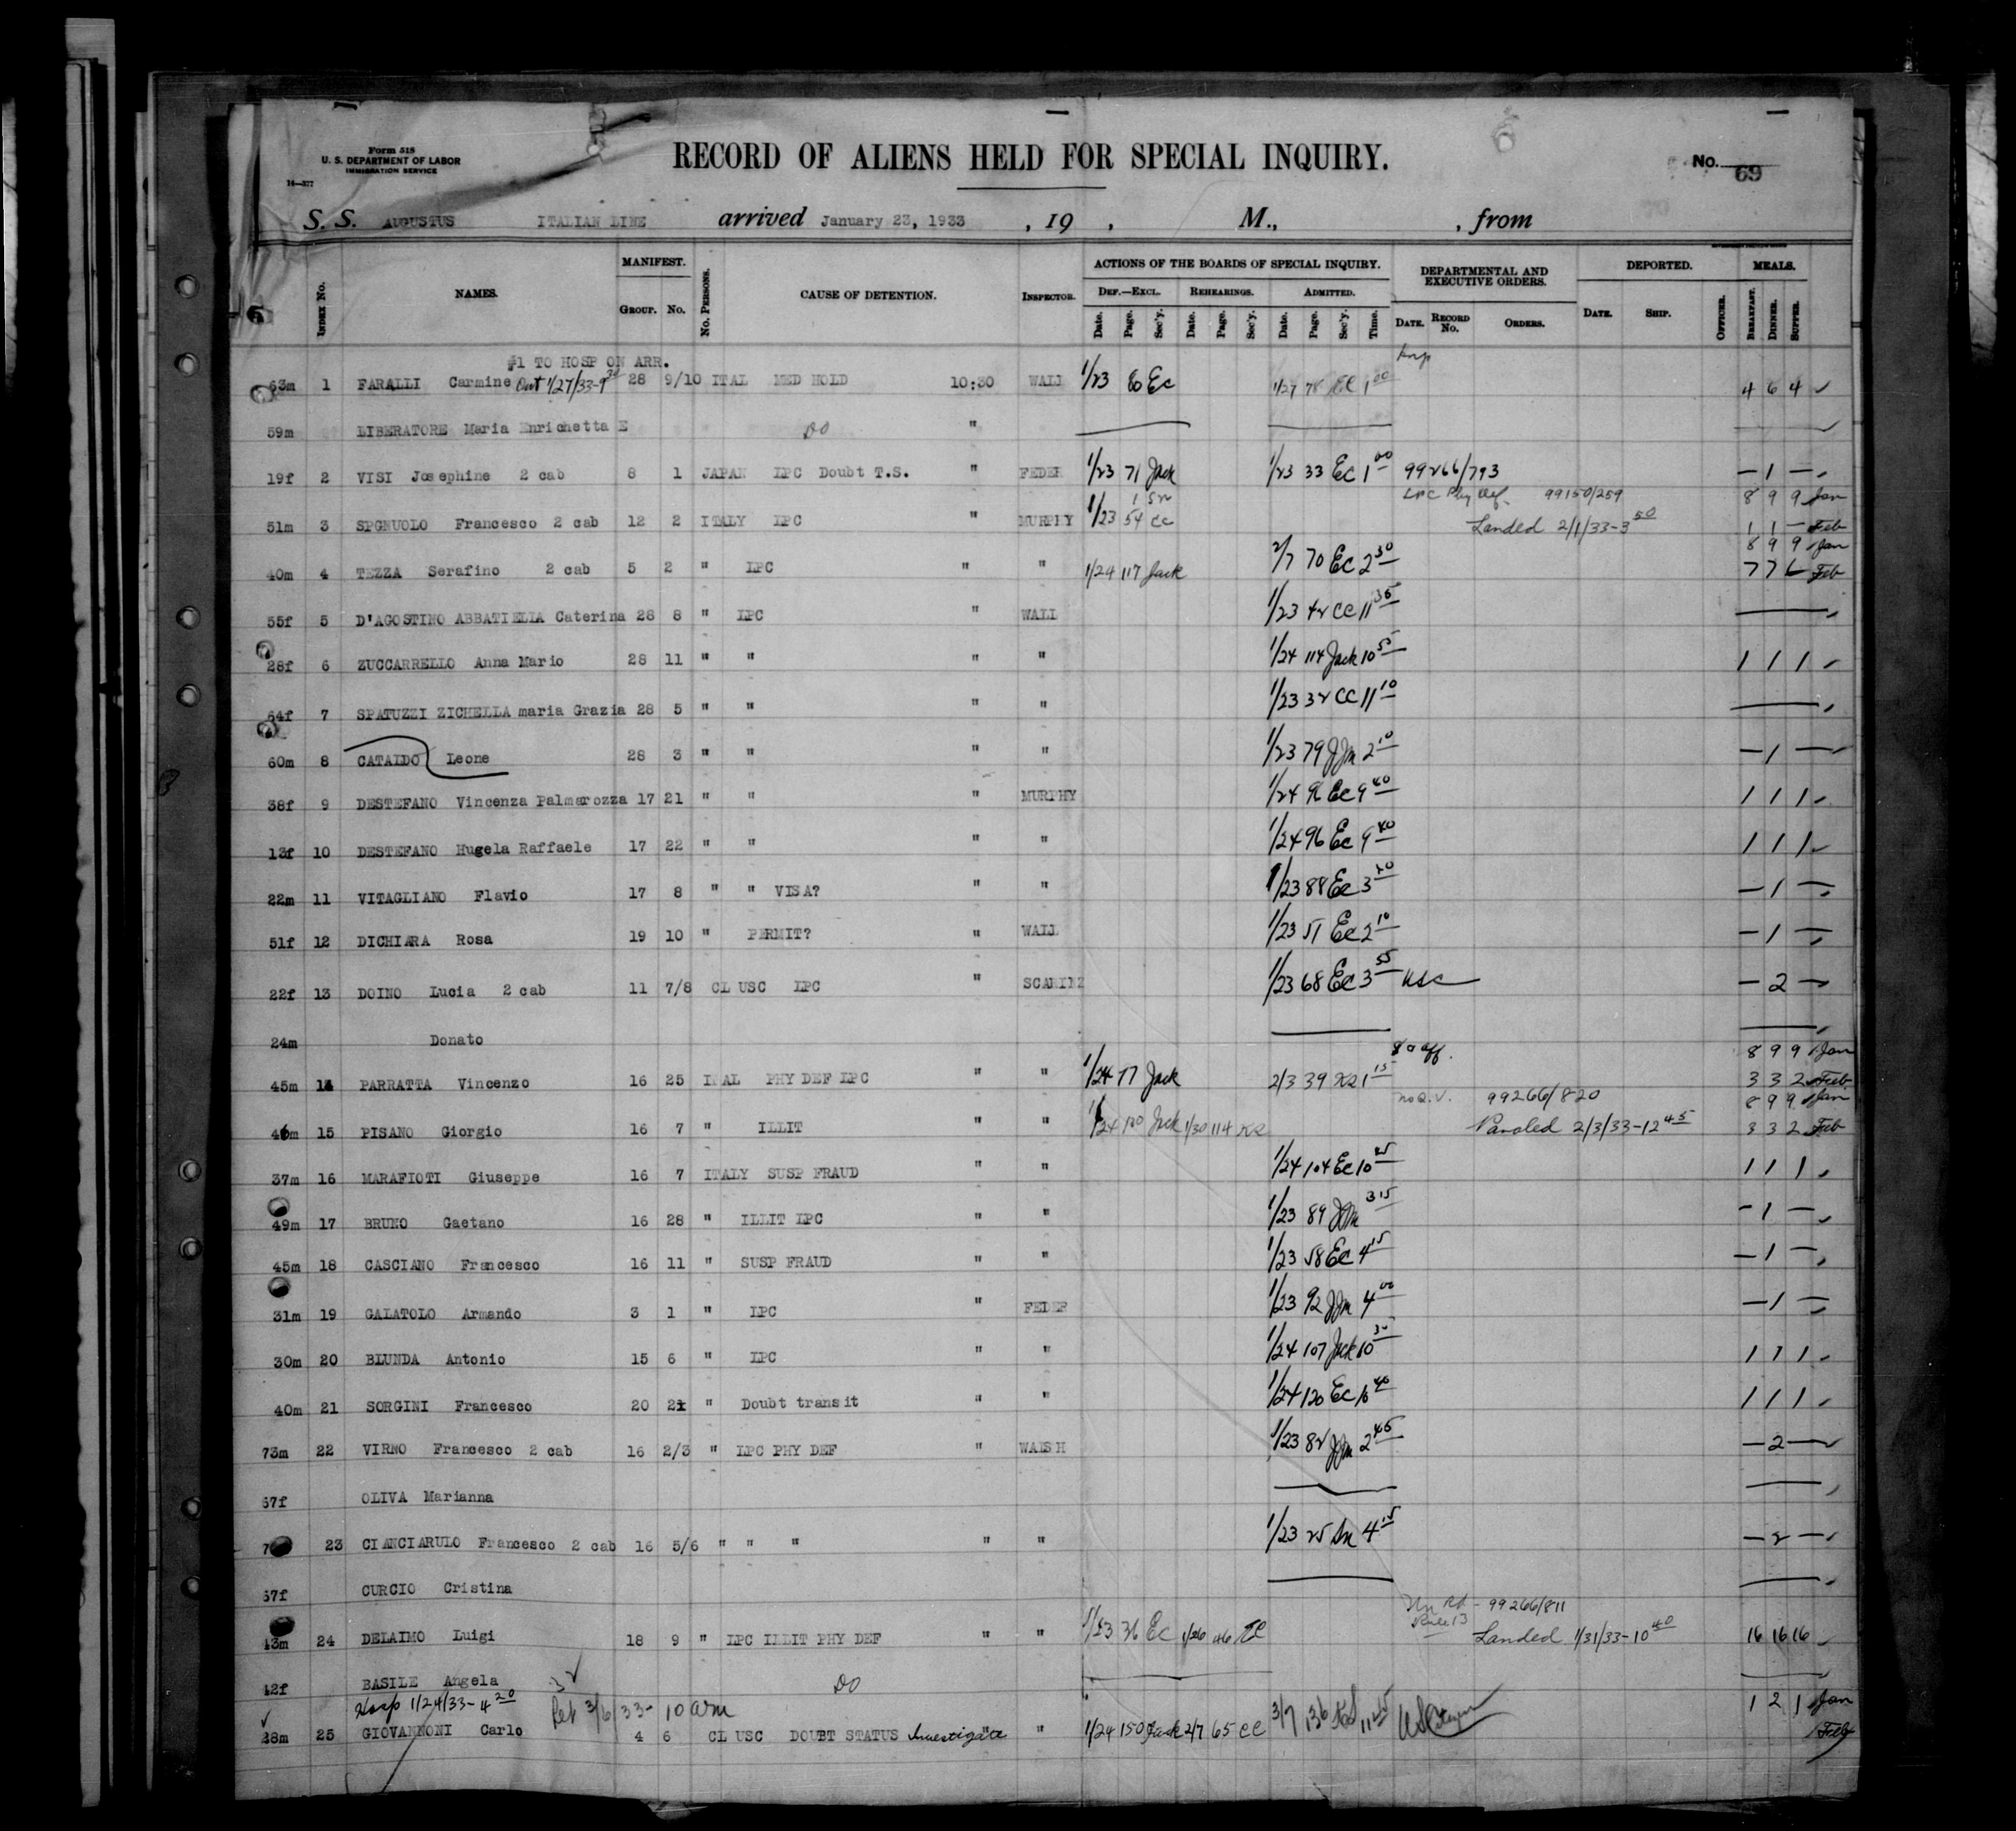 Form 518
U. S. DEPARTMENT OF LABOR
IMMIGRATION SERVICE
14—377
RECORD OF ALIENS HELD FOR SPECIAL INQUIRY.
No. 69
S. S. AUGUSTUS ITALIAN LINE arrived January 23, 1933 , 19 , M., , from
INDEX No. NAMES. MANIFEST. GROUP. No. No. PERSONS. CAUSE OF DETENTION. INSPECTOR. ACTIONS OF THE BOARDS OF SPECIAL INQUIRY. DEF.—EXCL. Date. Page. Sec'y. REHEARINGS. Date. Page. Sec'y. ADMITTED. Date. Page. Sec'y. Time. DEPARTMENTAL AND EXECUTIVE ORDERS. DATE. RECORD No. ORDERS. DEPORTED. DATE. SHIP. OFFICER. MEALS. BREAKFAST. DINNER. SUPPER.
#1 TO HOSP ON ARR. Hosp
63m 1 FARALLI Carmine Out 1/27/33-9 30 28 9/10 ITAL MED HOLD 10:30 WALL 1/23 80 Ec 1/27 78 EC 1 00 4 6 4
59m LIBERATORE Maria Enrichetta E DO "
19f 2 VISI Josephine 2 cab 8 1 JAPAN LPC Doubt T.S. " FEDER 1/23 71 Jack 1/23 33 Ec 1 00 99266/793 — 1 —
LPC Phy Def. 99150/259 8 9 9 Jan
51m 3 SPGNUOLO Francesco 2 cab 12 2 ITALY LPC " MURPHY 1/23 54 CC Landed 2/1/33-3 50 1 1 — Feb
8 9 9 Jan
40m 4 TEZZA Serafino 2 cab 5 2 " LPC " " 1/24 117 Jack 2/7 70 Ec 2 30 7 7 6 Feb
55f 5 D'AGOSTINO ABBATIELLA Caterina 28 8 " LPC " WALL 1/23 42 CC 11 35
28f 6 ZUCCARRELLO Anna Mario 28 11 " " " " 1/24 114 Jack 10 55 1 1 1
64f 7 SPATUZZI ZICHELLA maria Grazia 28 5 " " " " 1/23 32 CC 11 10
60m 8 CATALDO Leone 28 3 " " " " 1/23 79 JJM 2 10 — 1 —
38f 9 DESTEFANO Vincenza Palmarozza 17 21 " " " MURPHY 1/24 96 Ec 9 40 1 1 1
13f 10 DESTEFANO Hugela Raffaele 17 22 " " " " 1/24 96 Ec 9 40 1 1 1
22m 11 VITAGLIANO Flavio 17 8 " " VISA? " " 1/23 88 Ec 3 20 — 1 —
51f 12 DICHIARA Rosa 19 10 " PERMIT? " WALL 1/23 51 Ec 2 10 — 1 —
22f 13 DOINO Lucia 2 cab 11 7/8 CL USC LPC " SCARINZ 1/23 68 Ec 3 55 USC — 2 —
24m Donato
8 9 9 Jan
45m 14 PARRATTA Vincenzo 16 25 ITAL PHY DEF LPC " " 1/24 77 Jack 2/3 39 1 15 3 3 2 Feb
no Q.V. 99266/820 8 9 9 Jan
46m 15 PISANO Giorgio 16 7 " ILLIT " " 1/24 100 Jack 1/30 114 Paroled 2/3/33-12 45 3 3 2 Feb
37m 16 MARAFIOTI Giuseppe 16 7 ITALY SUSP FRAUD " " 1/24 104 Ec 10 25 1 1 1
49m 17 BRUNO Gaetano 16 28 " ILLIT LPC " " 1/23 89 JJM 3 15 — 1 —
45m 18 CASCIANO Francesco 16 11 " SUSP FRAUD " " 1/23 58 Ec 4 15 — 1 —
31m 19 GALATOLO Armando 3 1 " LPC " FEDER 1/23 92 JJM 4 00 — 1 —
30m 20 BLUNDA Antonio 15 6 " LPC " " 1/24 107 Jack 10 30 1 1 1
40m 21 SORGINI Francesco 20 21 " Doubt transit " " 1/24 120 Ec 10 40 1 1 1
73m 22 VIRNO Francesco 2 cab 16 2/3 " LPC PHY DEF " WALSH 1/23 82 JJM 2 45 — 2 —
67f OLIVA Marianna
23 CIANCIARULO Francesco 2 cab 16 5/6 " " " " " 1/23 25 4 15 — 2 —
67f CURCIO Cristina
99266/811
Rule 13
43m 24 DELAIMO Luigi 18 9 " LPC ILLIT PHY DEF " " 1/23 36 Ec 1/26 46 EC Landed 1/31/33-10 40 16 16 16
42f BASILE Angela DO
Hosp 1/24/33-4 20 Ret 3/6/33- 10 am 1 2 1 Jan
28m 25 GIOVANNONI Carlo 4 6 CL USC DOUBT STATUS Investigate " " 1/24 150 Jack 2/7 65 CC 3/7 136 11 45 Feb